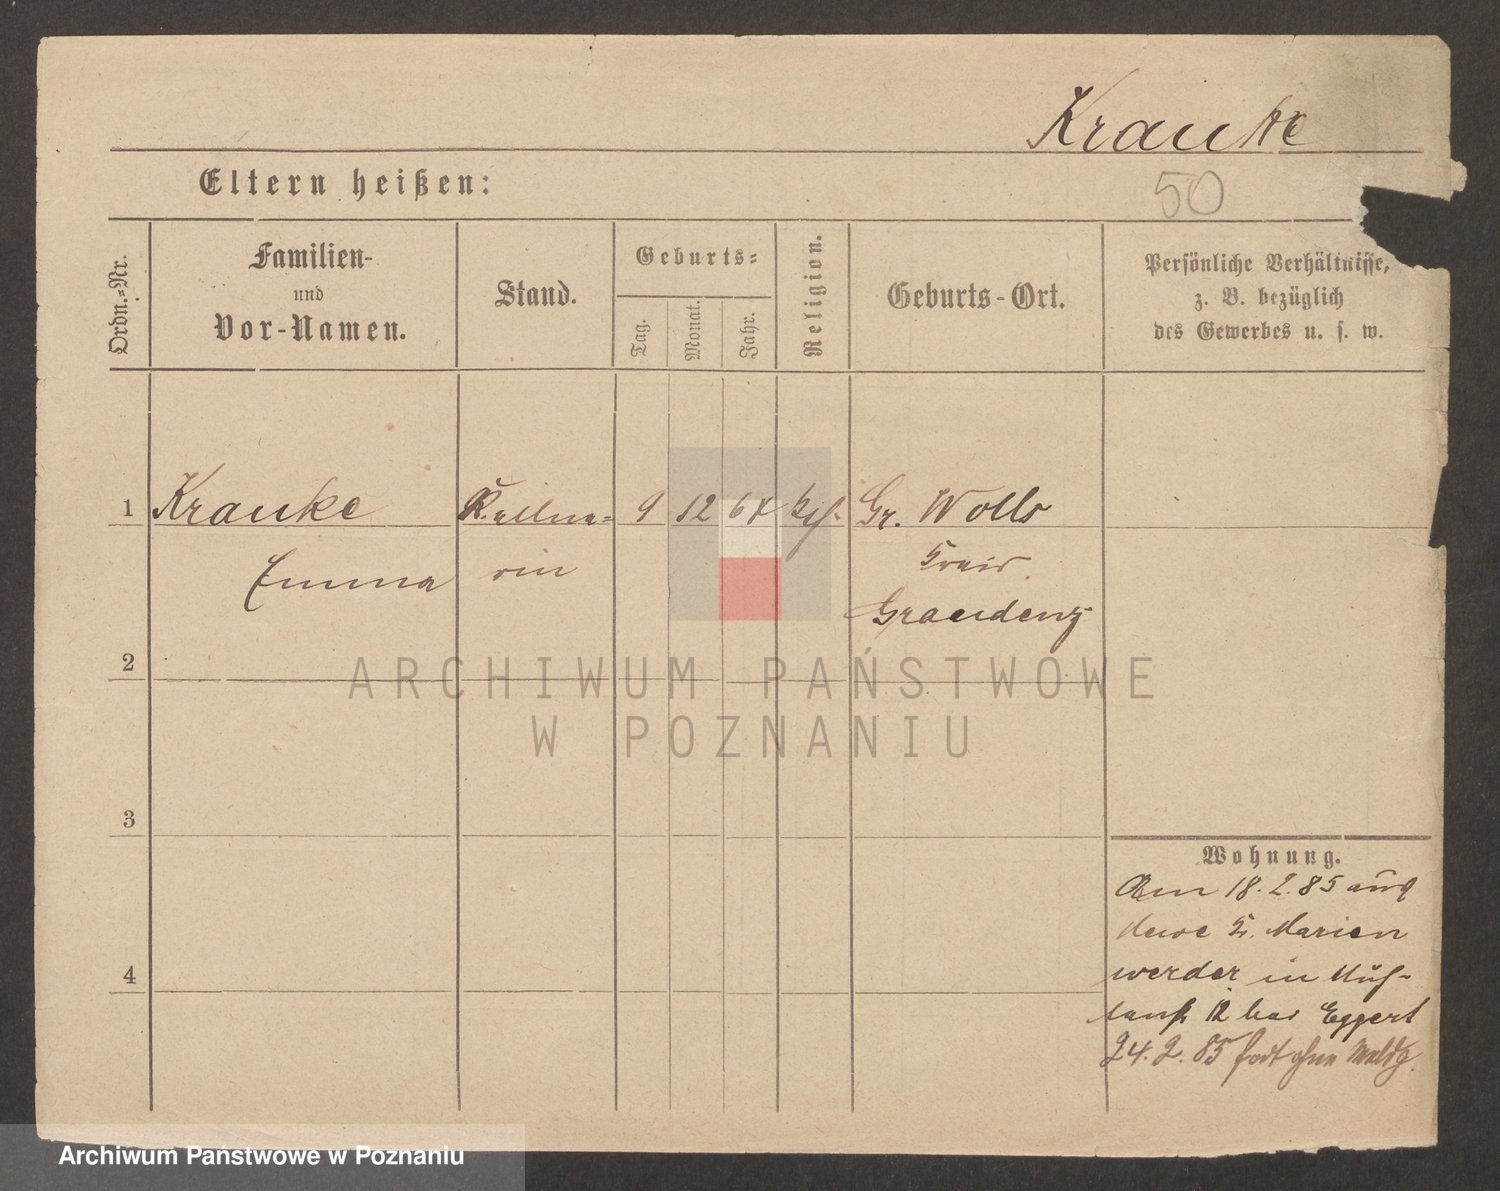 Krauke
Eltern heißen:
50
Ordn.=Nr.
Familien-
und
Vor-Namen.
Stand.
Geburts=
Tag.
Monat.
Jahr.
Religion.
Geburts-Ort.
Persönliche Verhältnisse,
z. B. bezüglich
des Gewerbes u. s. w.
1
Krauke
Kellne=
9
12
64
Gr. Wolls
Emma
rin
Kreis
Graudenz
2
3
4
Wohnung.
Am 18. 2. 85 aus
Mewe K. Marien
werder in
12 bei Eggert
24. 2. 85 fort ohne Meldg.
ARCHIWUM PAŃSTWOWE
W POZNANIU
Archiwum Państwowe w Poznaniu